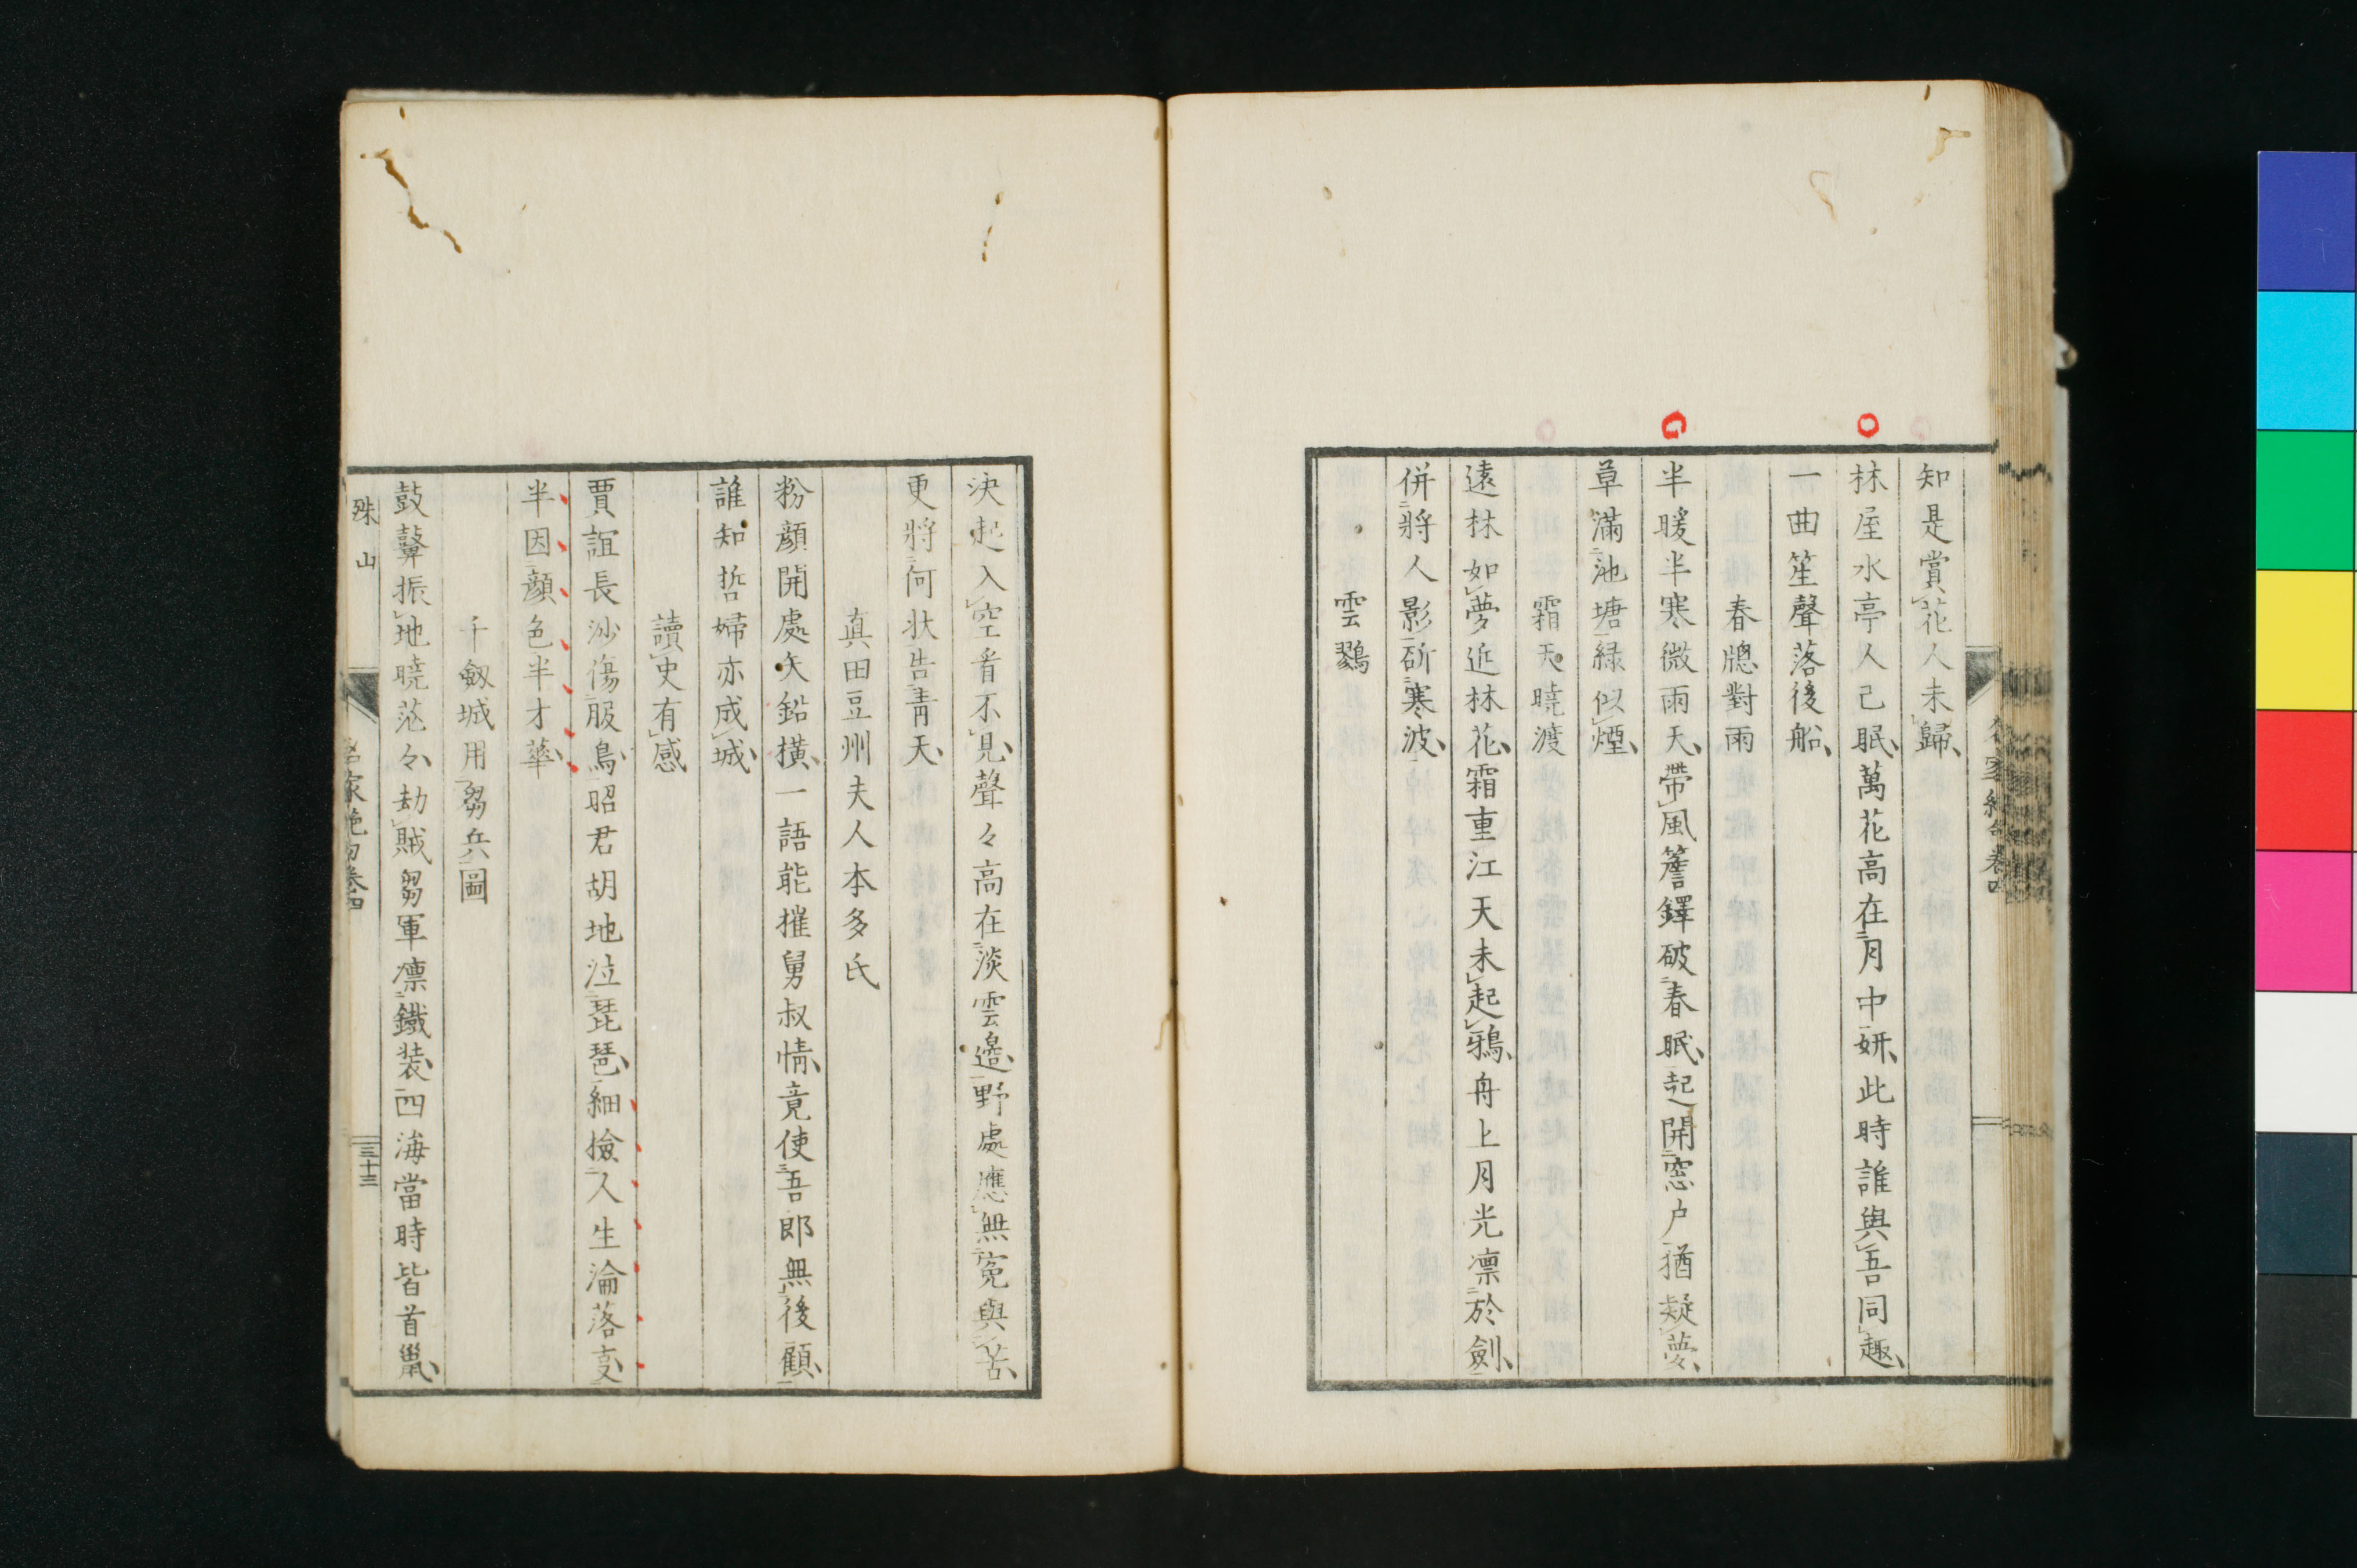 知是賞花人未歸
林屋水亭人已眠萬花高在月中妍此時誰與吾同趣
一曲笙聲落後船
春牕對雨
半暖半寒微雨天帶風簷鐸破春眠起開窓戶猶疑夢
草滿池塘緑似煙
霜天曉渡
遠林如夢近林花霜重江天未起鴉舟上月光凛於劍
併將人影斫寒波
雲鷚
決起入空看不見聲々高在淡雲邉野處應無寃與苦
更將何狀告靑天
真田豆州夫人本多氏
粉顔開處矢鉛橫一語能摧舅叔情竟使吾郎無後顧
誰知哲婦亦成城
讀史有感
賈誼長沙傷服鳥昭君胡地泣琵琶細撿人生淪落㕝
半因顔色半才華
千劔城用芻兵圖
鼓鼙振地曉茫々劫賊芻軍凛鐵装四海當時皆首鼠
殊山
名家絶句卷四
三十三